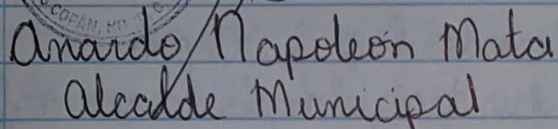 COPÁN, HO
Anardo Napoleón Mata
Alcalde Municipal